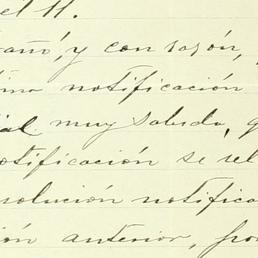 el 11.
añó, y con razón,
ma notificación
ial muy sabido, q
otificación se rel
solución notifica
ión anterior, por